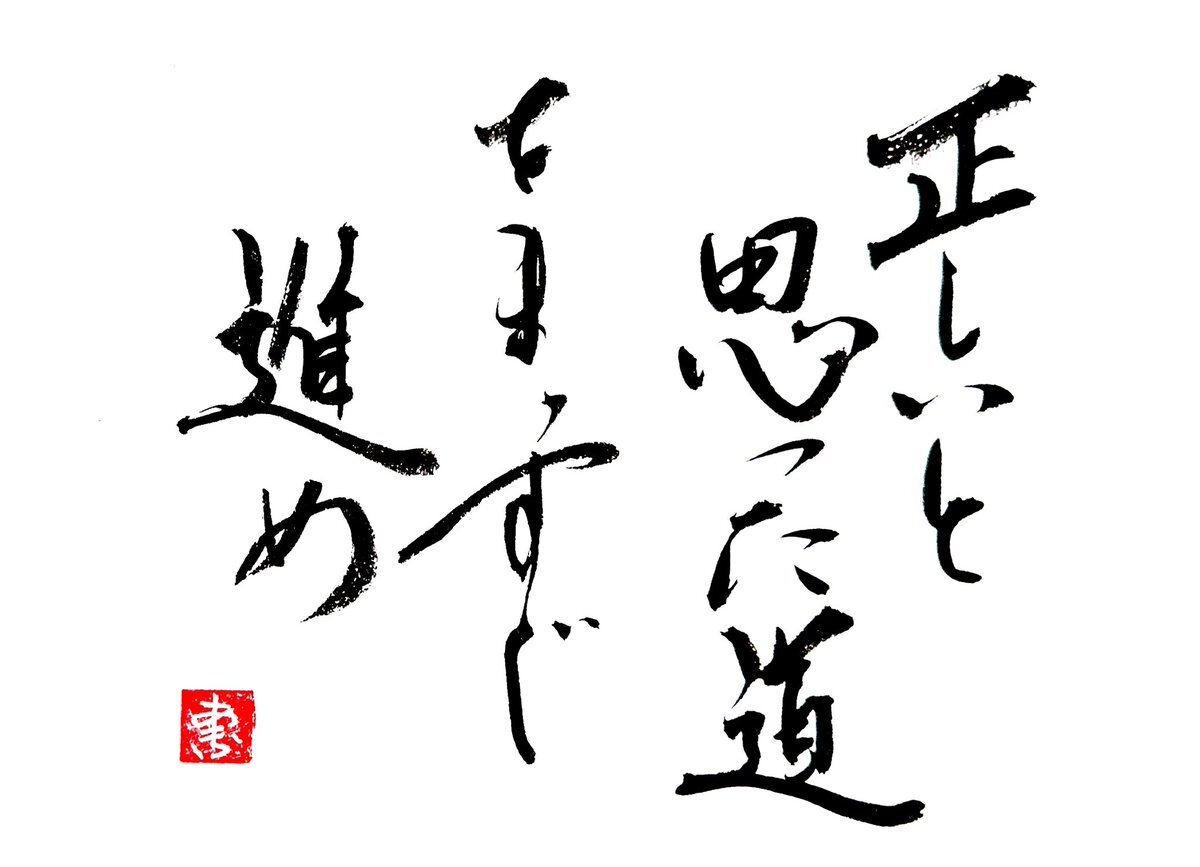 正しいと
思った道
をまっすぐ
進め